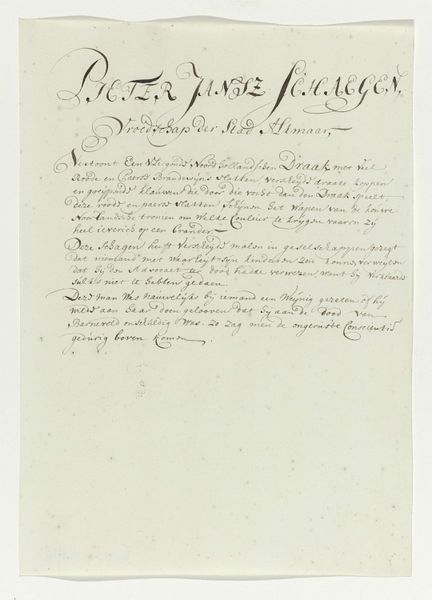 PIETER JANSZ SCHAEGEN,
Vroedschap der Stad Alkmaar,
Vertoont Een vliegende Noord hollandschen Draak met veel
Roode en Paerse Brandewijns vlakken, verscheyde draake koppen
en grijpende klauwen die door die vocht dan den Draak speelt,
deze roode en paerse vlakken schijnen het wapen van de
om welke Couleur te krijgen waaren zij
heel ieverich op een Brander.
Deze Schagen heeft verscheyde malen in geselschappen gezegt
dat niemand met waarheyt sijn kinderen zou konnen verwyten
dat hy den Advocaet ter dood hadde verwezen want hy verklaarde
sulks niet te hebben gedaen.
Deze man was nauwelijks bij iemand een weynig gezeten of hij
wilde aan haar doen gelooven dat hy aan de dood van
Barneveld onschuldig was. zo zag men de ongeruste Conscientie
gedurig boven komen.